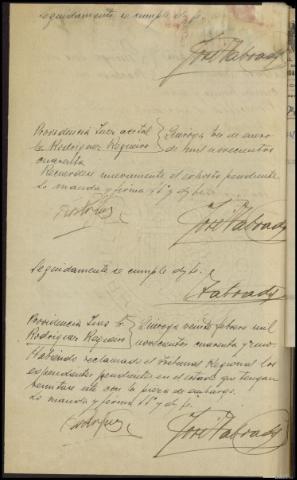 Seguidamente se cumple doy fe.
José Tabrady
Providencia Juez acctal
Sr Rodríguez Regueiro
Quiroga tres de enero
de mil novecientos
cuarenta
Recuérdese nuevamente el exhorto pendiente
Lo manda y firma Sª doy fe
José Tabrady
Seguidamente se cumple doy fe.
Tabrady
Providencia Juez Sr
Rodríguez Regueiro
Quiroga veinte febrero mil
novecientos cuarenta y uno.
Habiendo reclamado el Tribunal Regional los
expedientes pendientes en el estado que tengan
remítase este con la pieza de embargo.
Lo manda y firma Sª doy fe.
José Tabrady